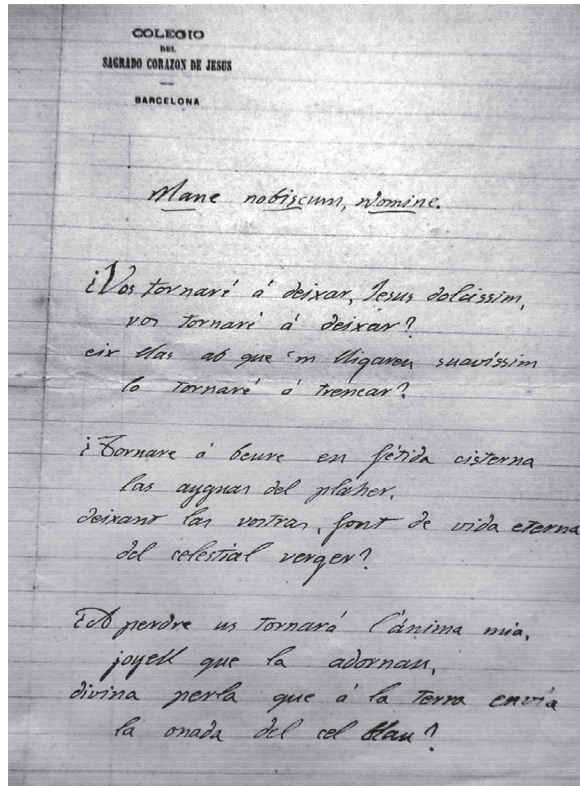 COLEGIO
DEL
SAGRADO CORAZON DE JESUS
BARCELONA
Mane nobiscum, Domine.
¿Vos tornaré á deixar, Jesus dolcissim,
vos tornaré á deixar?
eix llas ab que 'm lligareu suavíssim
lo tornaré á trencar?
¿Tornare á beure en fétida cisterna
las ayguas del plaher,
deixant las vostras, font de vida eterna
del celestial verger?
¿A perdre us tornará l'ánima mia,
joyell que la adornau,
divina perla que á la terra envia
la onada del cel blau?